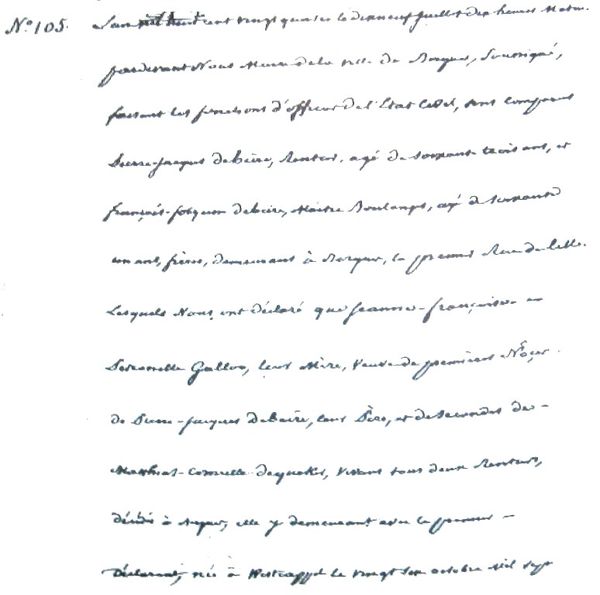 N.° 105. L'an mil huit cent vingt quatre le dixneuf juillet dix heures Matin
pardevant Nous Maire de la ville de Bergues, Soussigné,
faisant les fonctions d'officier de l'Etat Civil, sont comparus
Pierre-Jacques deBeire, Rentier, agé de soixante trois ans, et
françois-Joseph deBeire, Maitre Boulanger, agé de soixante
un ans, frères, demeurant à Bergues, le premier Rue de Lille.
Lesquels Nous ont déclaré que Jeanne-françoise-
Petronelle Galloo, leur Mère, Veuve de premières Nôçes
de Pierre-Jacques deBeire, leur Père, et de secondes de-
Matthias-Corneille dequeker, Vivant tous deux Rentiers,
décédés à Bergues, elle y demeurant avec le premier -
Déclarant, née à Westcappel le vingt six octobre Mil sept